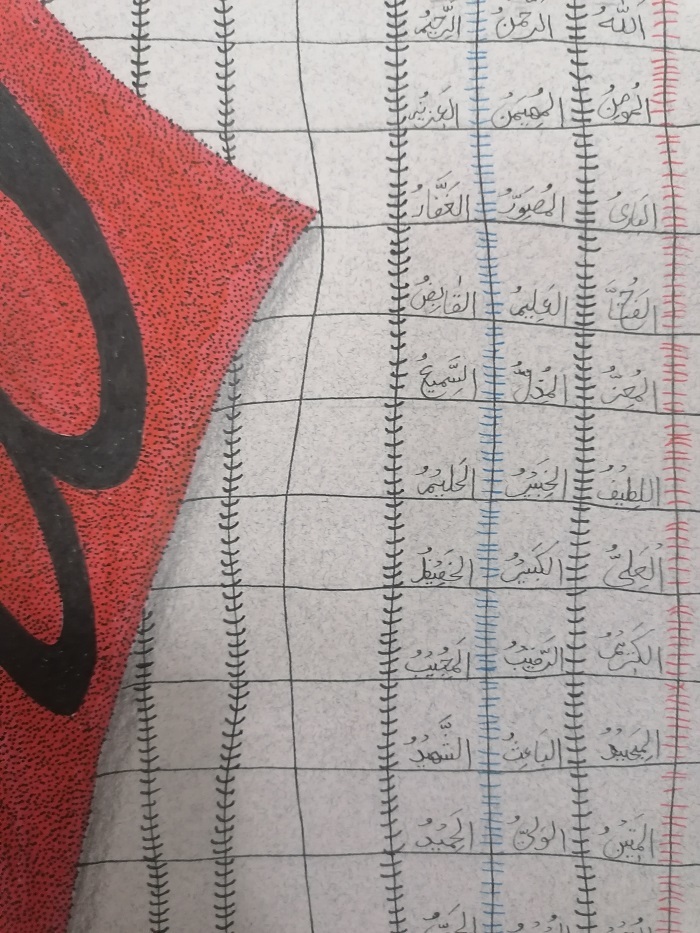 اللهُ الرَّحْمٰنُ الرَّحِيمُ
المُؤمِنُ المُهَيمِنُ العَزيزُ
البَارِئُ المُصَوِّرُ الغَفَّارُ
الفَتَّاحُ العَلِيمُ القَابِضُ
المُعِزُّ المُذِلُّ السَّمِيعُ
اللطِيفُ الخَبِيرُ الحَلِيمُ
العَلِيُّ الكَبِيرُ الحَفِيظُ
الكَرِيمُ الرَّقِيبُ المُجِيبُ
المَجِيدُ البَاعِثُ الشَّهِيدُ
المَتِينُ الوَلِيُّ الحَمِيدُ